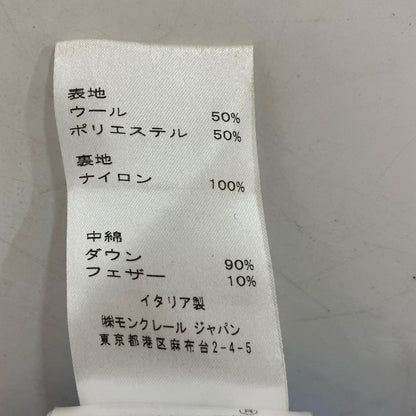 表地
ウール 50%
ポリエステル 50%
裏地
ナイロン 100%
中綿
ダウン 90%
フェザー 10%
イタリア製
㈱モンクレール ジャパン
東京都港区麻布台2-4-5
®